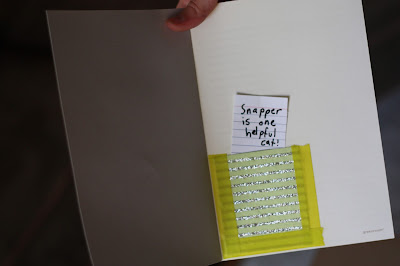 Snapper
is one
helpful
cat!